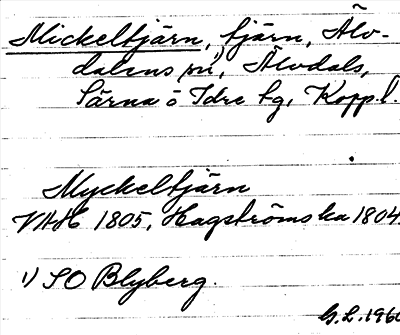 Mickeltjärn, tjärn, Älv-
dalens sn¹⁾, Älvdals,
Särna o Idre tg, Kopp.l.
Myckeltjärn
VHAH 1805, Hagströms ka 1804
1) SO Blyberg.
G.L. 1960